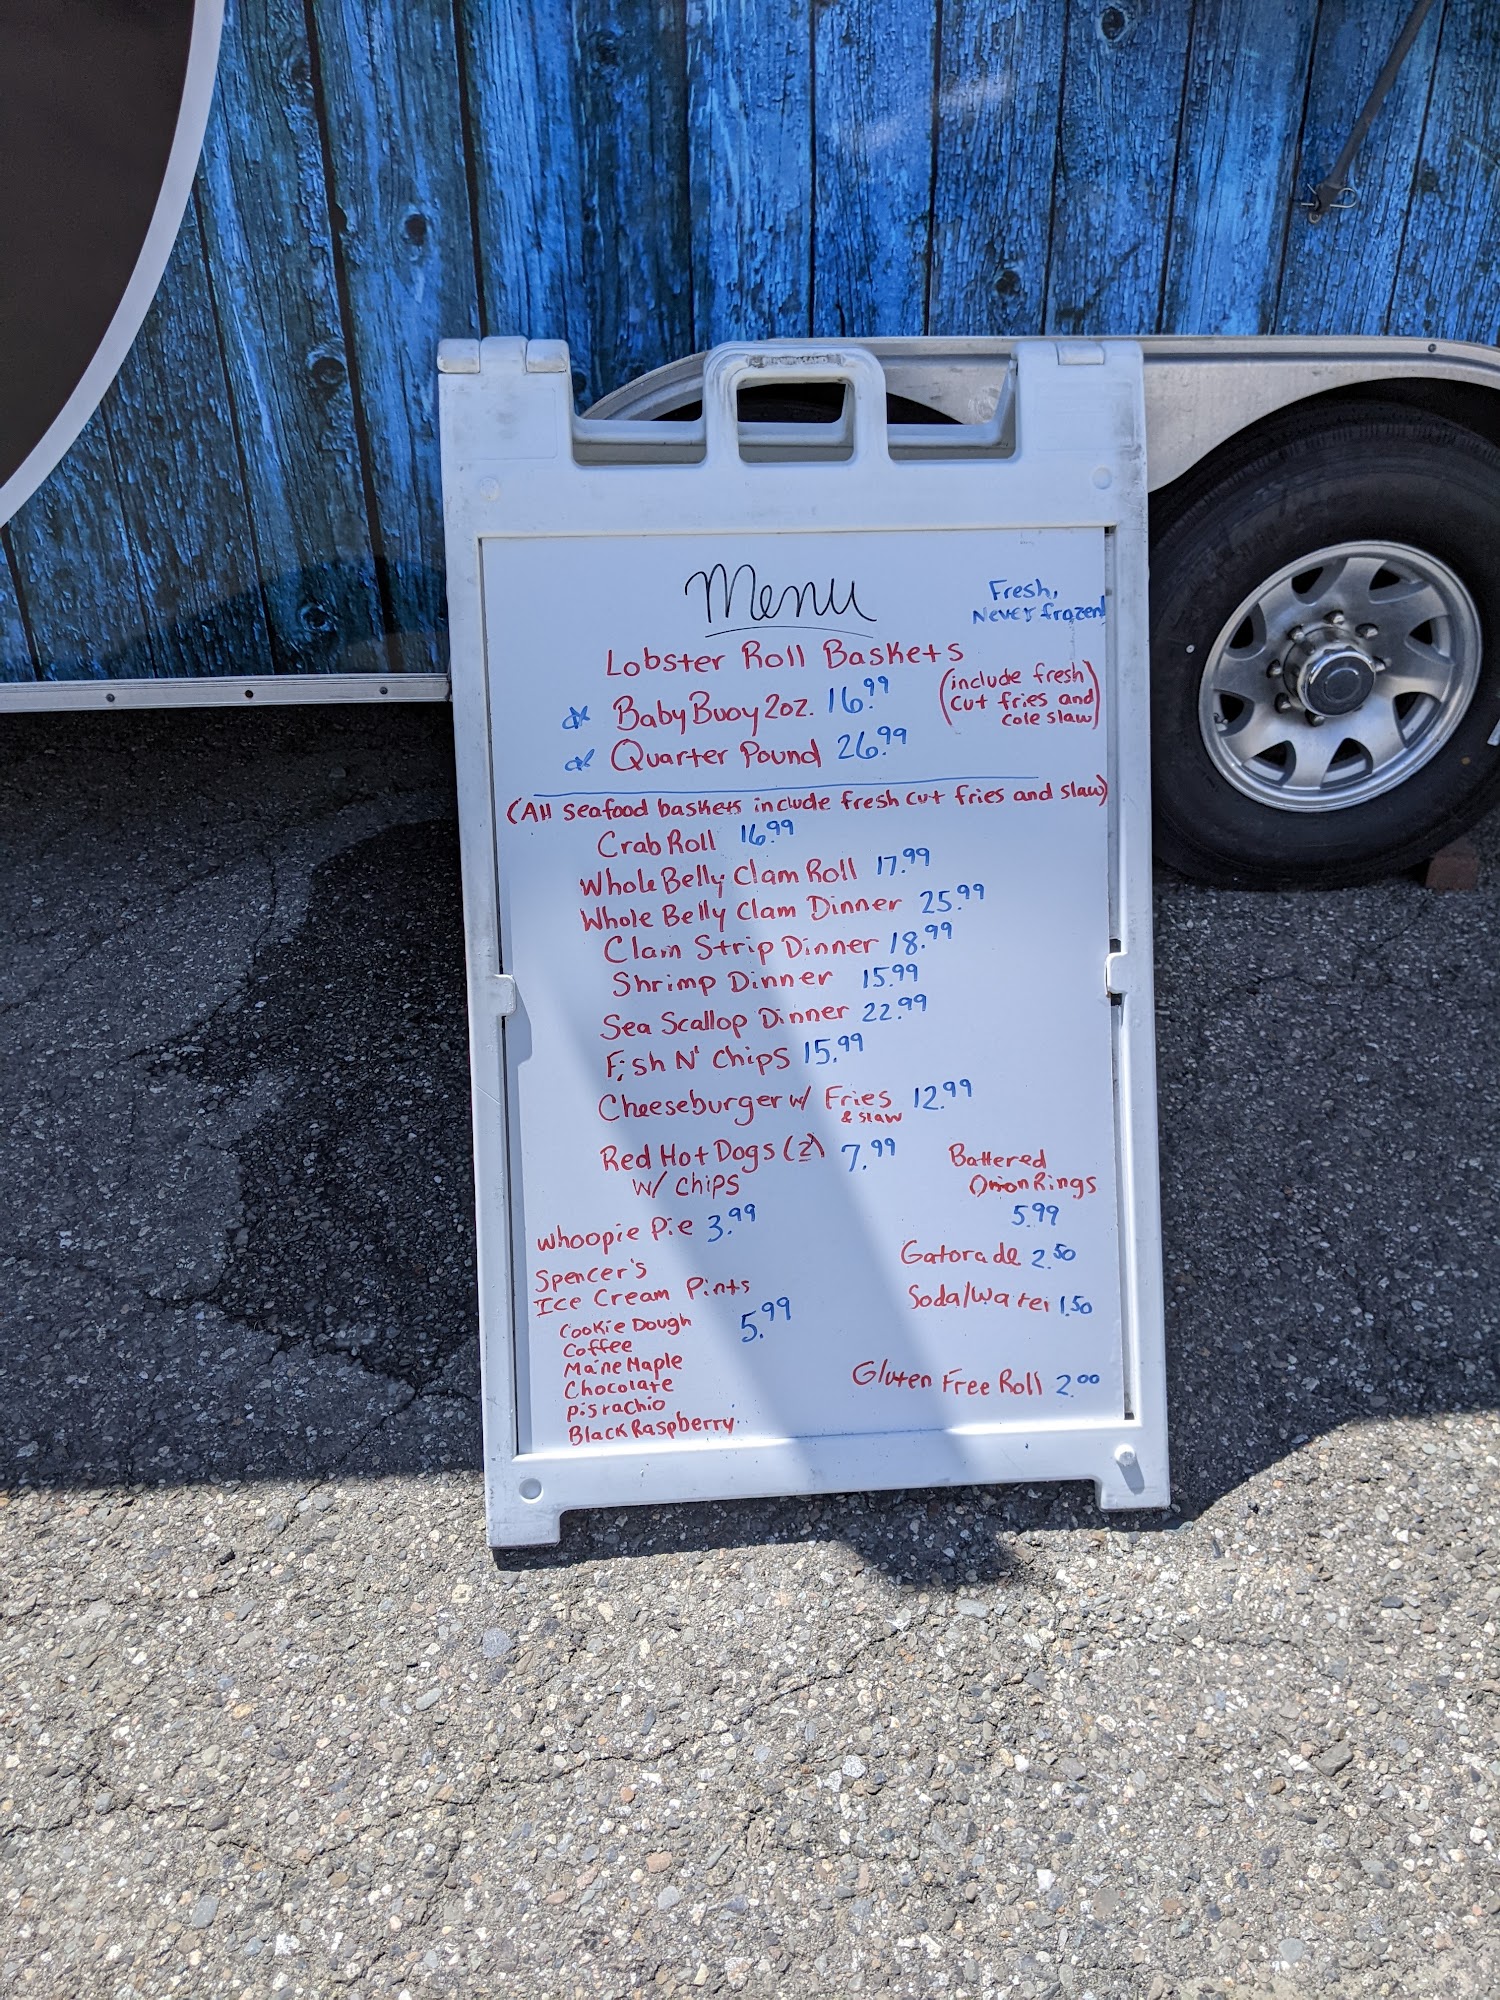 Menu
Fresh,
Never frozen!
Lobster Roll Baskets
Baby Buoy 2oz. 16.99
(include fresh
cut fries and
cole slaw)
Quarter Pound 26.99
(All seafood baskets include fresh cut fries and slaw)
Crab Roll 16.99
Whole Belly Clam Roll 17.99
Whole Belly Clam Dinner 25.99
Clam Strip Dinner 18.99
Shrimp Dinner 15.99
Sea Scallop Dinner 22.99
Fish N' Chips 15.99
Cheeseburger w/ Fries 12.99
& slaw
Red Hot Dogs (2) 7.99
w/ chips
Battered
Onion Rings
5.99
Whoopie Pie 3.99
Gatorade 2.50
Spencer's
Ice Cream Pints
5.99
Soda/Water 1.50
Cookie Dough
Coffee
Maine Maple
Chocolate
Pistachio
Black Raspberry
Gluten Free Roll 2.00